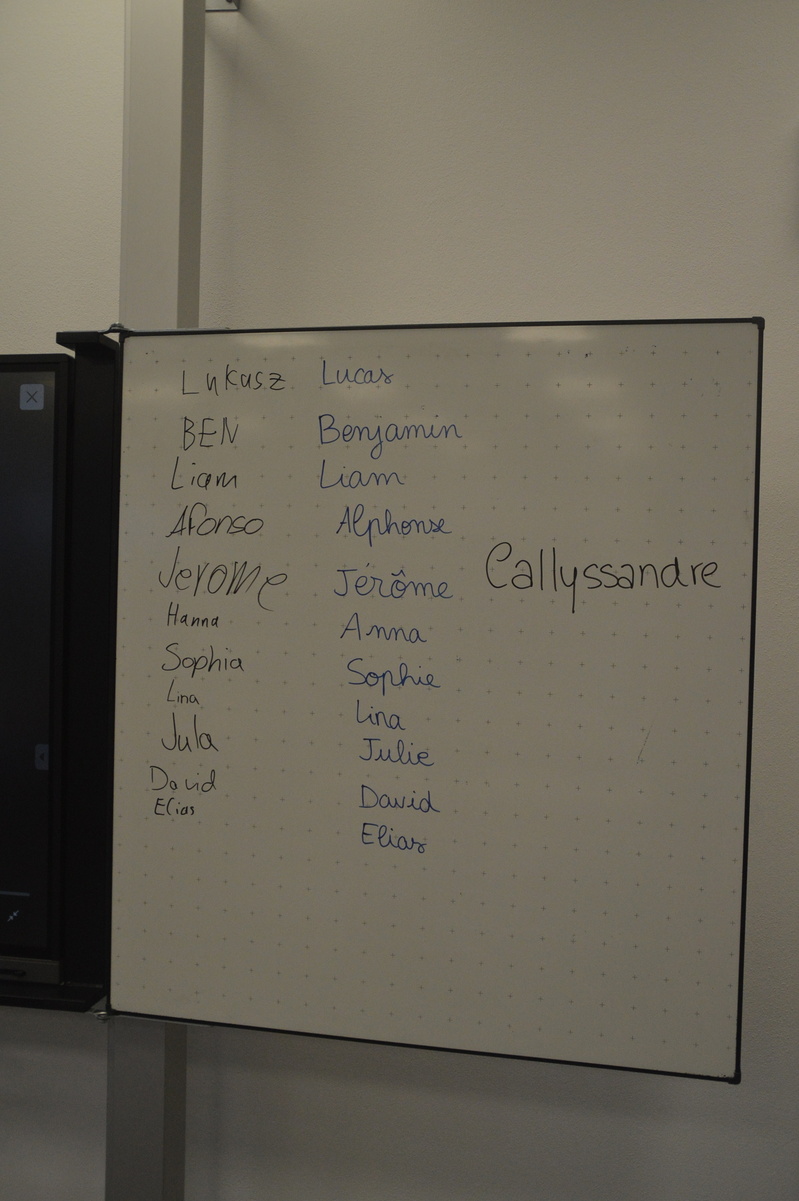 Lukasz Lucas
BEN Benjamin
Liam Liam
Afonso Alphonse
Jerome Jérôme Callyssandre
Hanna Anna
Sophia Sophie
Lina Lina
Jula Julie
David David
Elias Elias